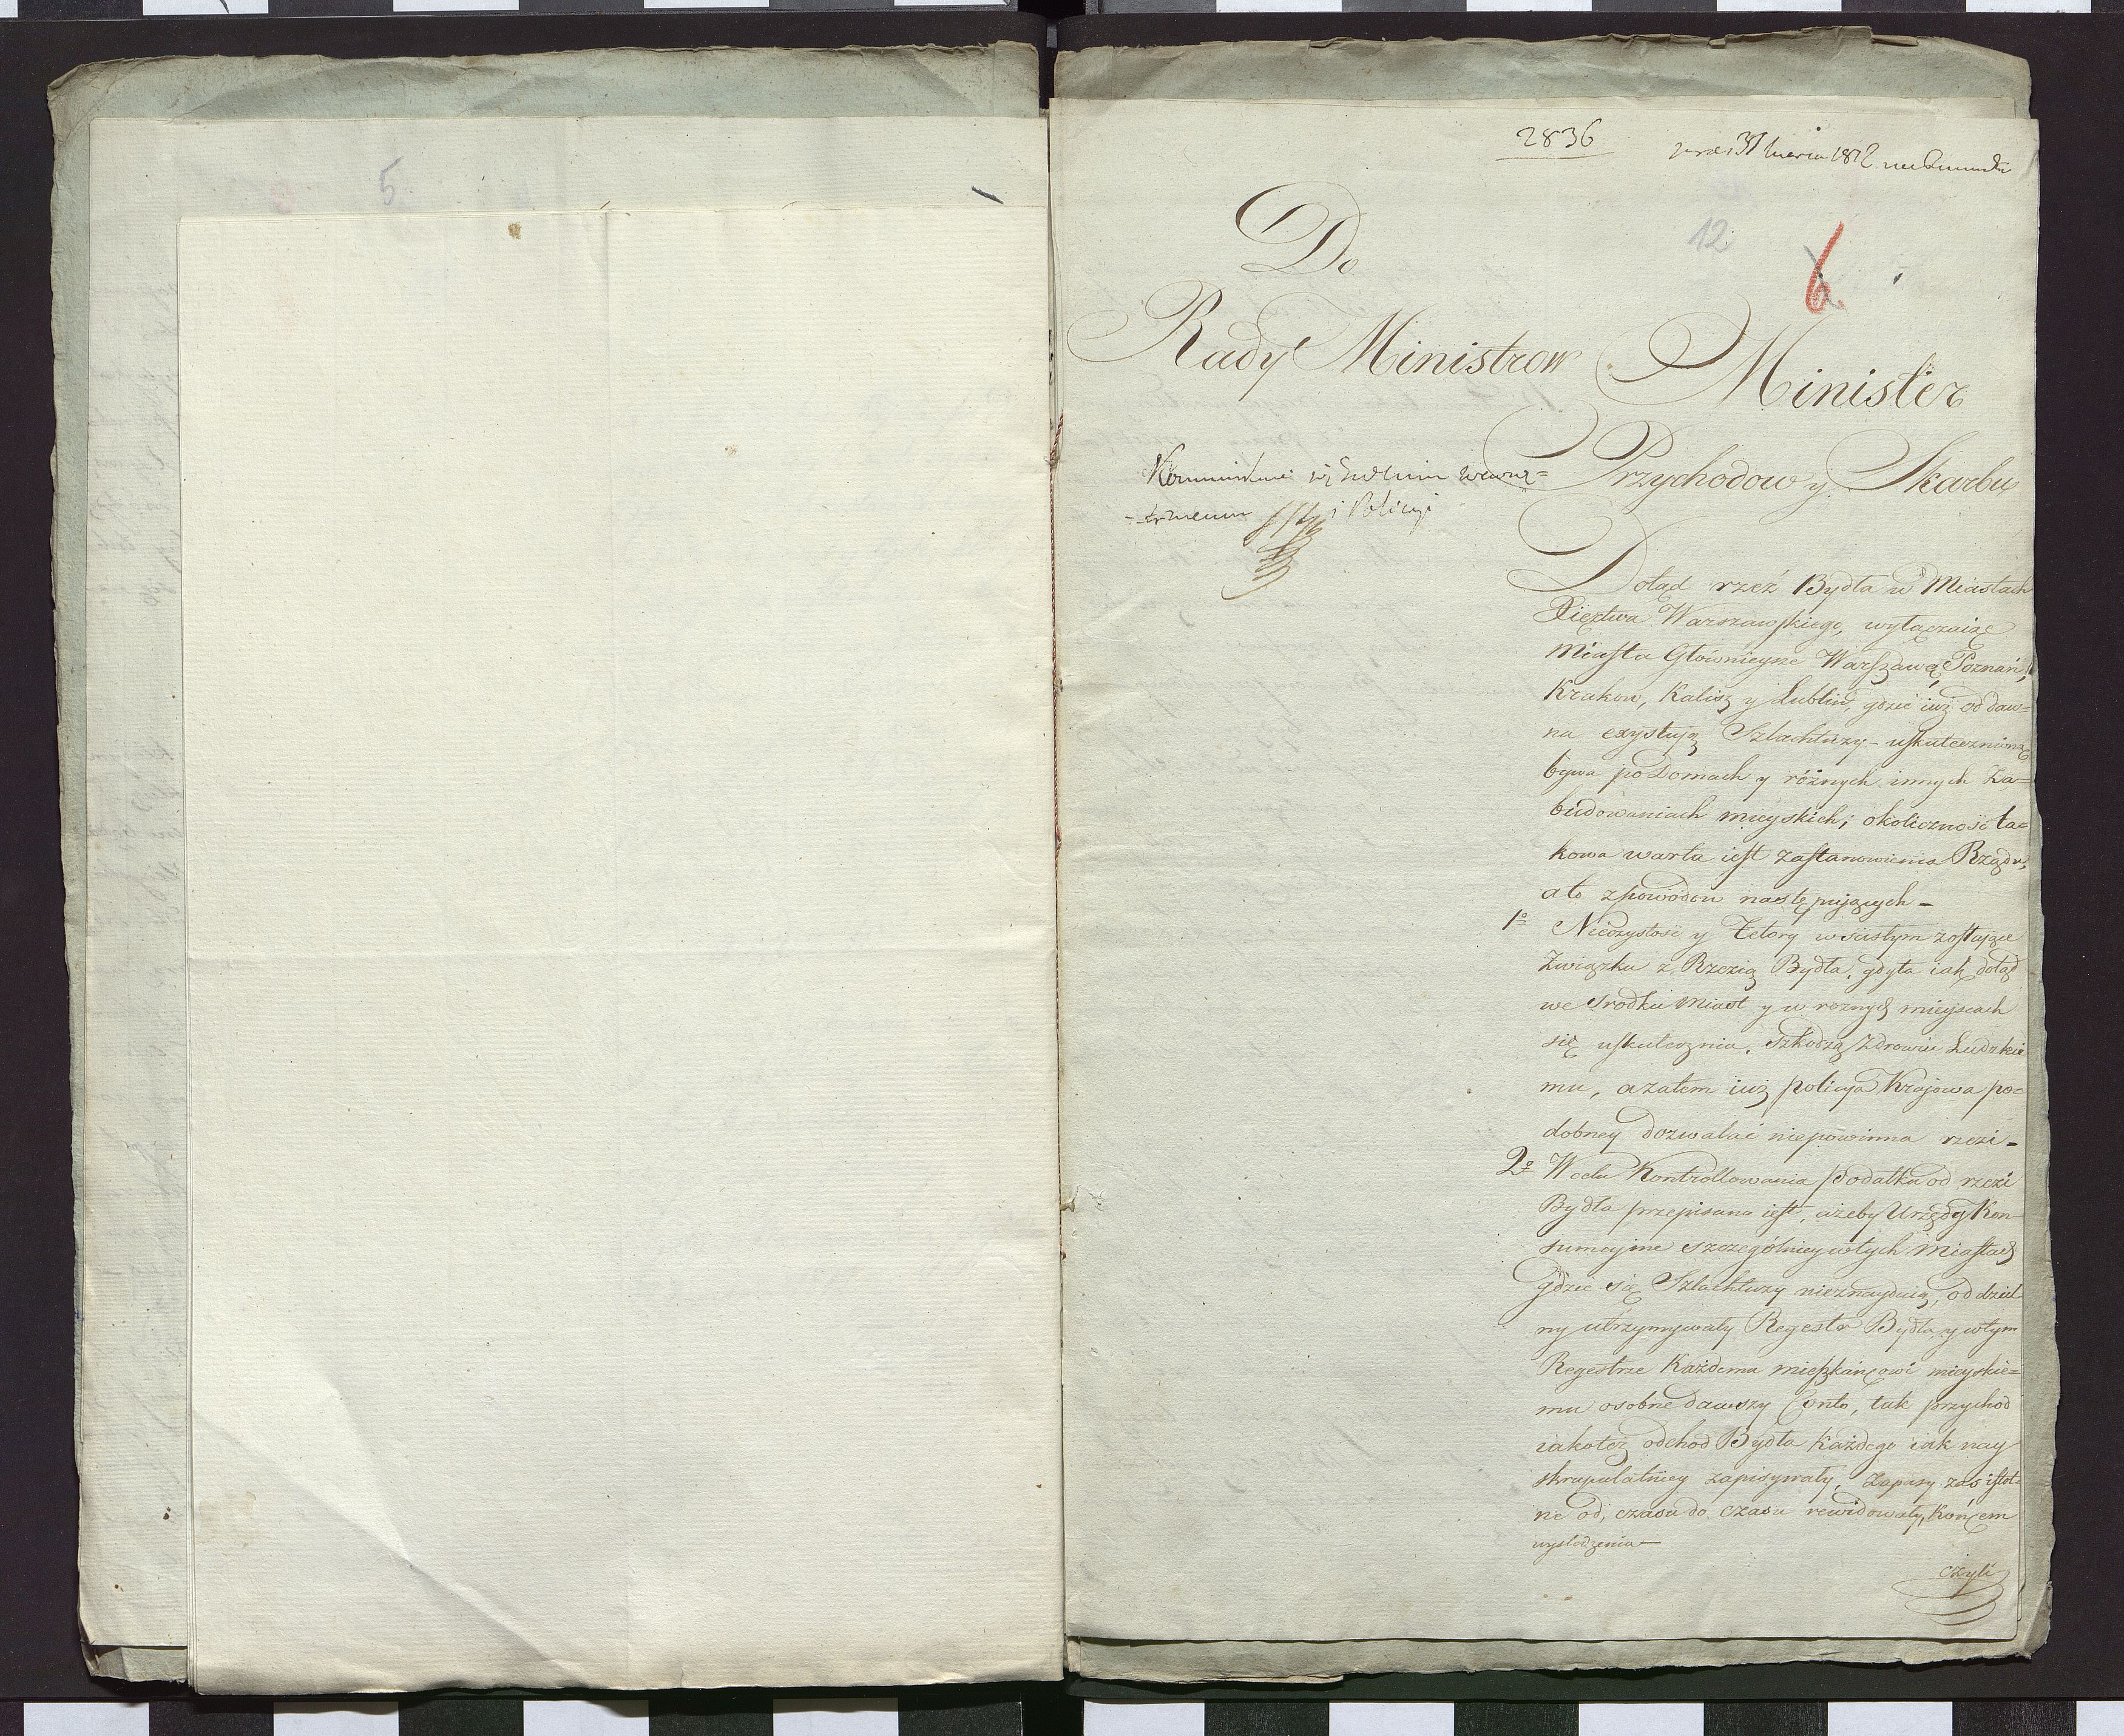 5
2836
31 1812
12
6
Do
Rady Ministrow
Minister
Przychodow y Skarbu
i Policyi
Dotąd rzeź Bydła w Miastach
Xięztwa Warszawskiego, wyłączaiąc
Miasta Głównieysze Warszawę, Poznań,
Krakow, Kalisz y Lublin, gdzie iuż od daw=
na exystuią Szlachtuzy - uskutecznioną
bywa po Domach y różnych innych Za=
budowaniach mieyskich; okoliczność ta=
kowa warta iest zastanowienia Rządu,
a to z powodow następuiących -
1o Nieczystość y Fetory w ścisłym zostaiące
Związku z Rzezią Bydła, gdy ta iak dotąd
we Srodku Miast y w roznych mieyscach
się uskutecznia, Szkodzą Zdrowiu Ludzkie
mu, a zatem iuż policya Kraiowa po=
dobney dozwalać niepowinna rzezi -
2o W celu Kontrollowania podatku od rzezi
Bydła przepisano iest, ażeby Urzędy Kon=
sumcyine szczególniey w tych Miastach
gdzie się Szlachtuzy nieznayduią, oddziel
ny utrzymywały Regestr Bydła, y w tym
Regestrze Każdemu mieszkańcowi mieyskie=
mu osobne dawszy Conto, tak przychod
iakoteż odchod Bydła Każdego iak nay
skrupulatniey zapisywały, Zapasy zaś istot=
ne od czasu do czasu rewidowały, Końcem
wyśledzenia -
czyli